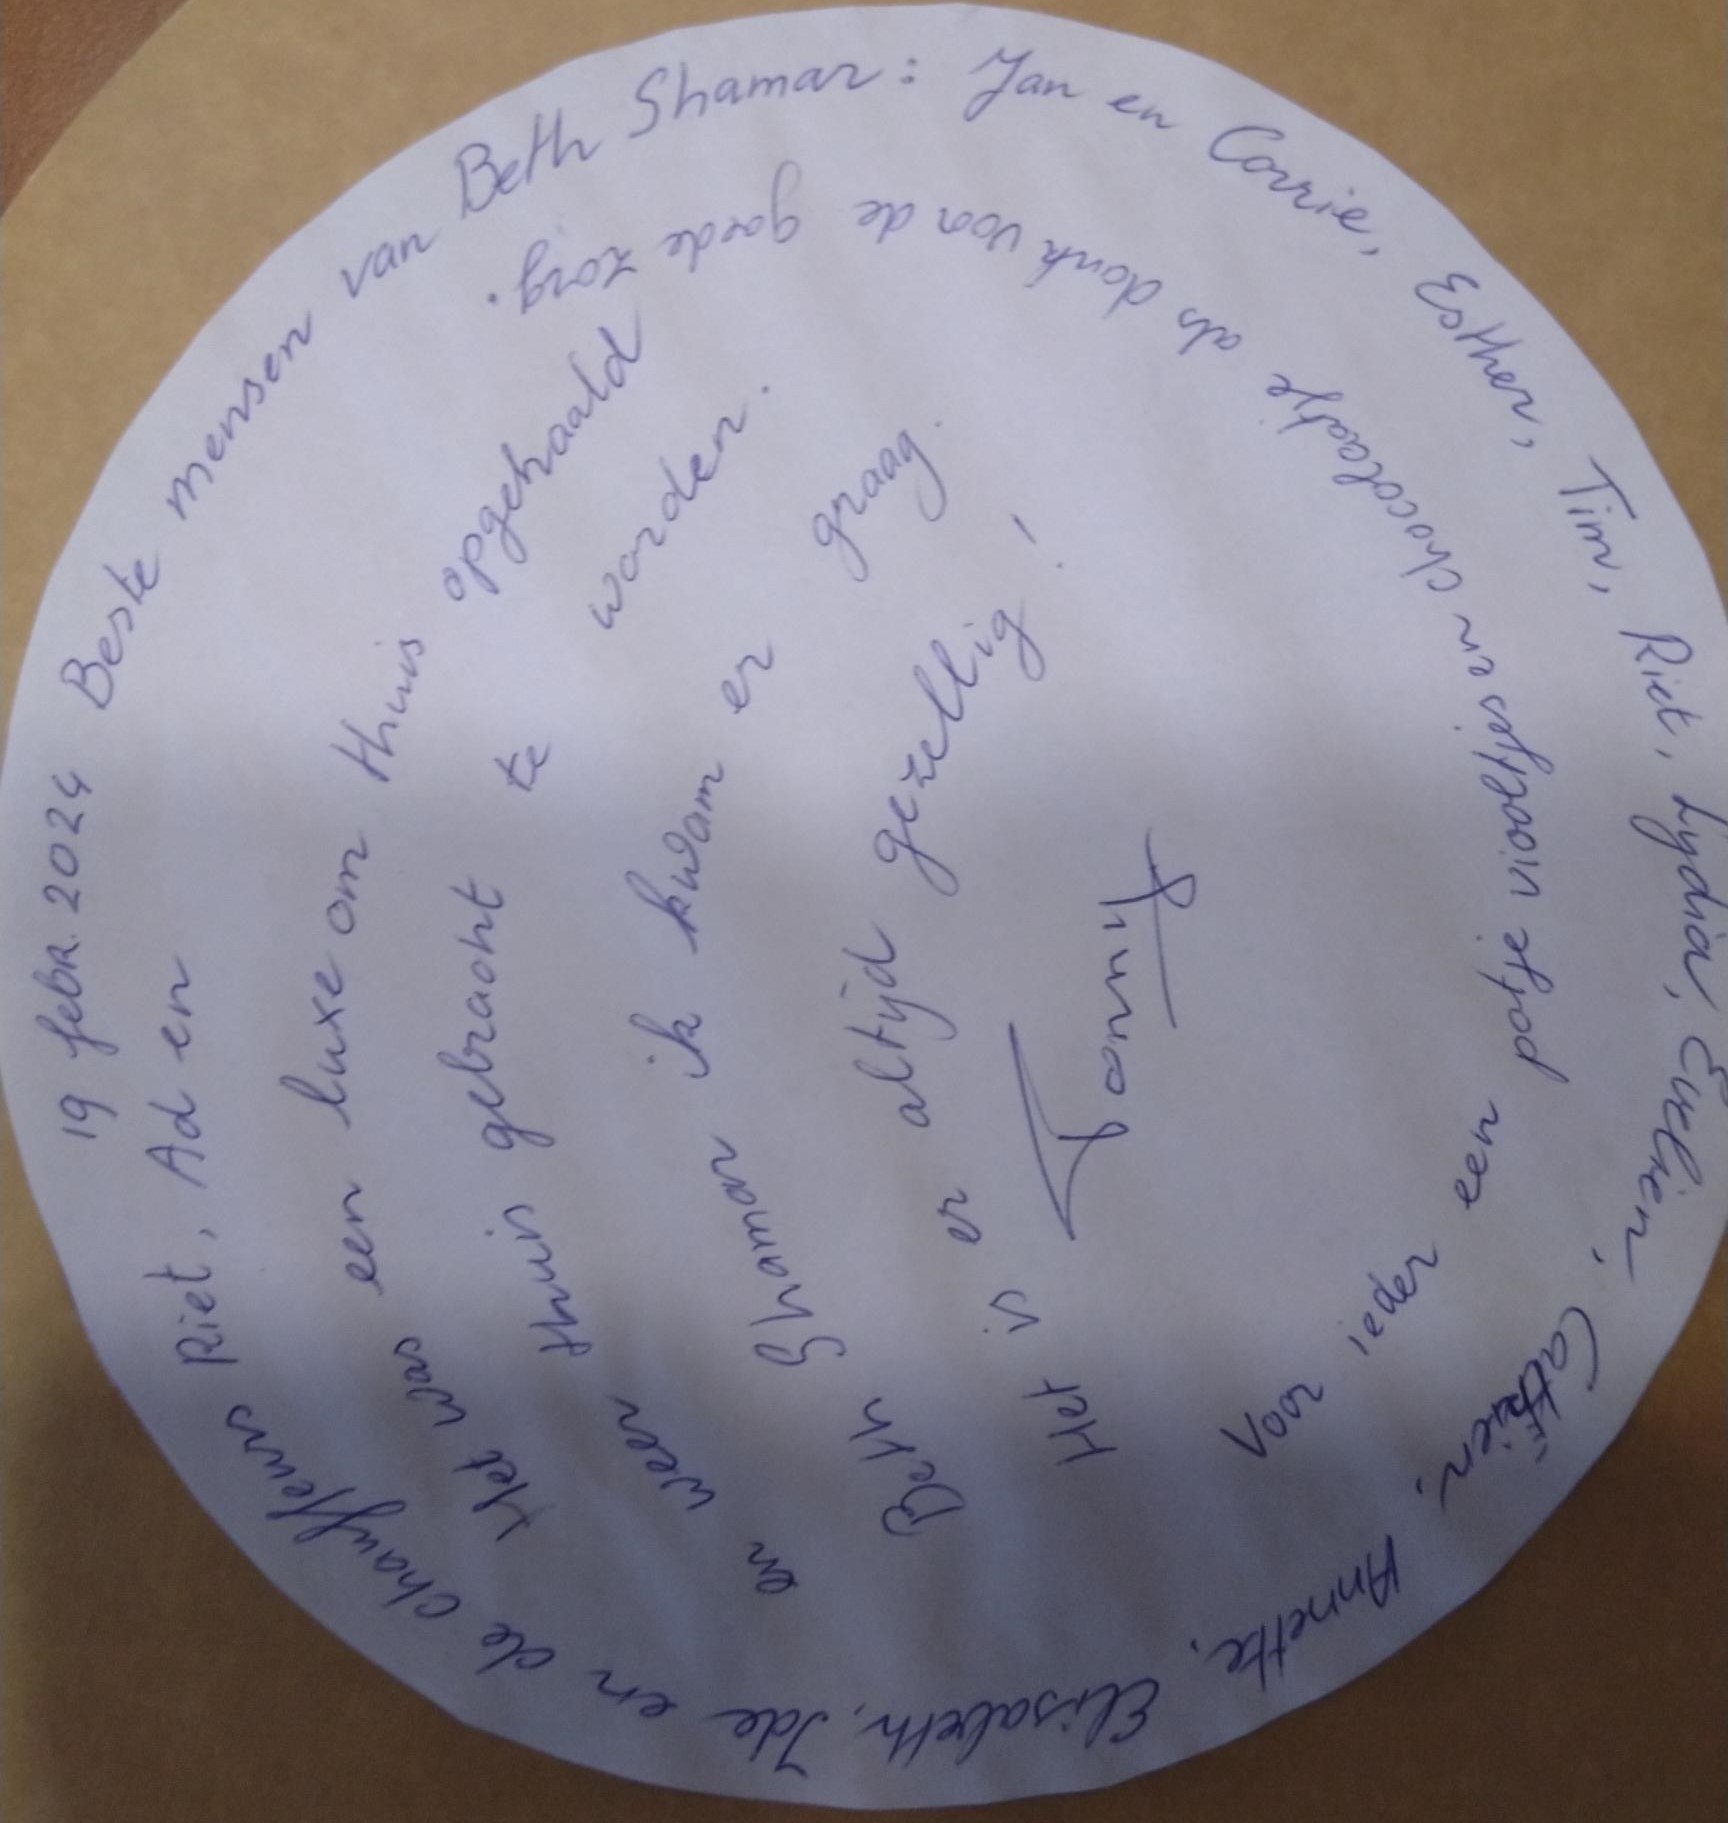 19 febr. 2024 Beste mensen van Beth Shamar: Jan en Corrie, Esther, Tim, Riet, Lydia, Evelien, Cathrien, Annette, Elisabeth, Ide en de chauffeurs Riet, Ad en
Het was een luxe om thuis opgehaald
en weer thuis gebracht te worden.
Beth Shamar ik kwam er graag.
Het is er altijd gezellig!
Voor ieder een potje viooltjes en chocolaatje als dank voor de goede zorg.